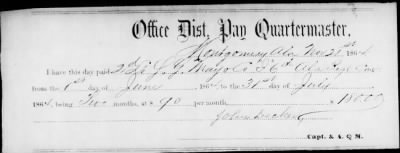 Office Dist. Pay Quartermaster,
Montgomery Ala Nov 22nd 1864
I have this day paid 2nd Lt Mayo Co F 6th Ala Regt
from the 1st day of June 1864 to the 31st day of July
1864 being Two months, at $ 90 per month, $ 180.00
John
Capt. & A. Q M.